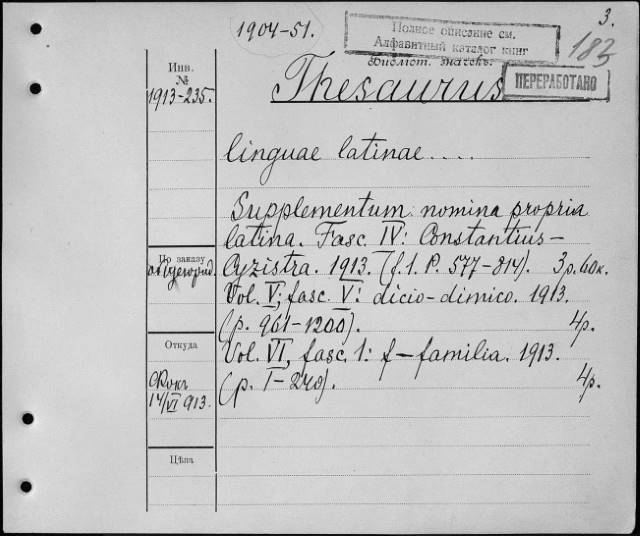 1904-51.
3.
Полное описание см.
Алфавитный каталог книг
183
Инв.
№
1913-235.
Thesaurus
ПЕРЕРАБОТАНО
linguae latinae....
Supplementum nomina propria
latina. Fasc. IV: Constantius-
По заказу
Cyzistra. 1913. (f.1. P. 577-814). 3р. 60к.
Vol. V; fasc. V: dicio-dimico. 1913.
(p. 961-1200). 4р.
Откуда
Vol. VI, fasc. 1: f-familia. 1913.
(p. I-240). 4р.
14/VI 913.
Цѣна